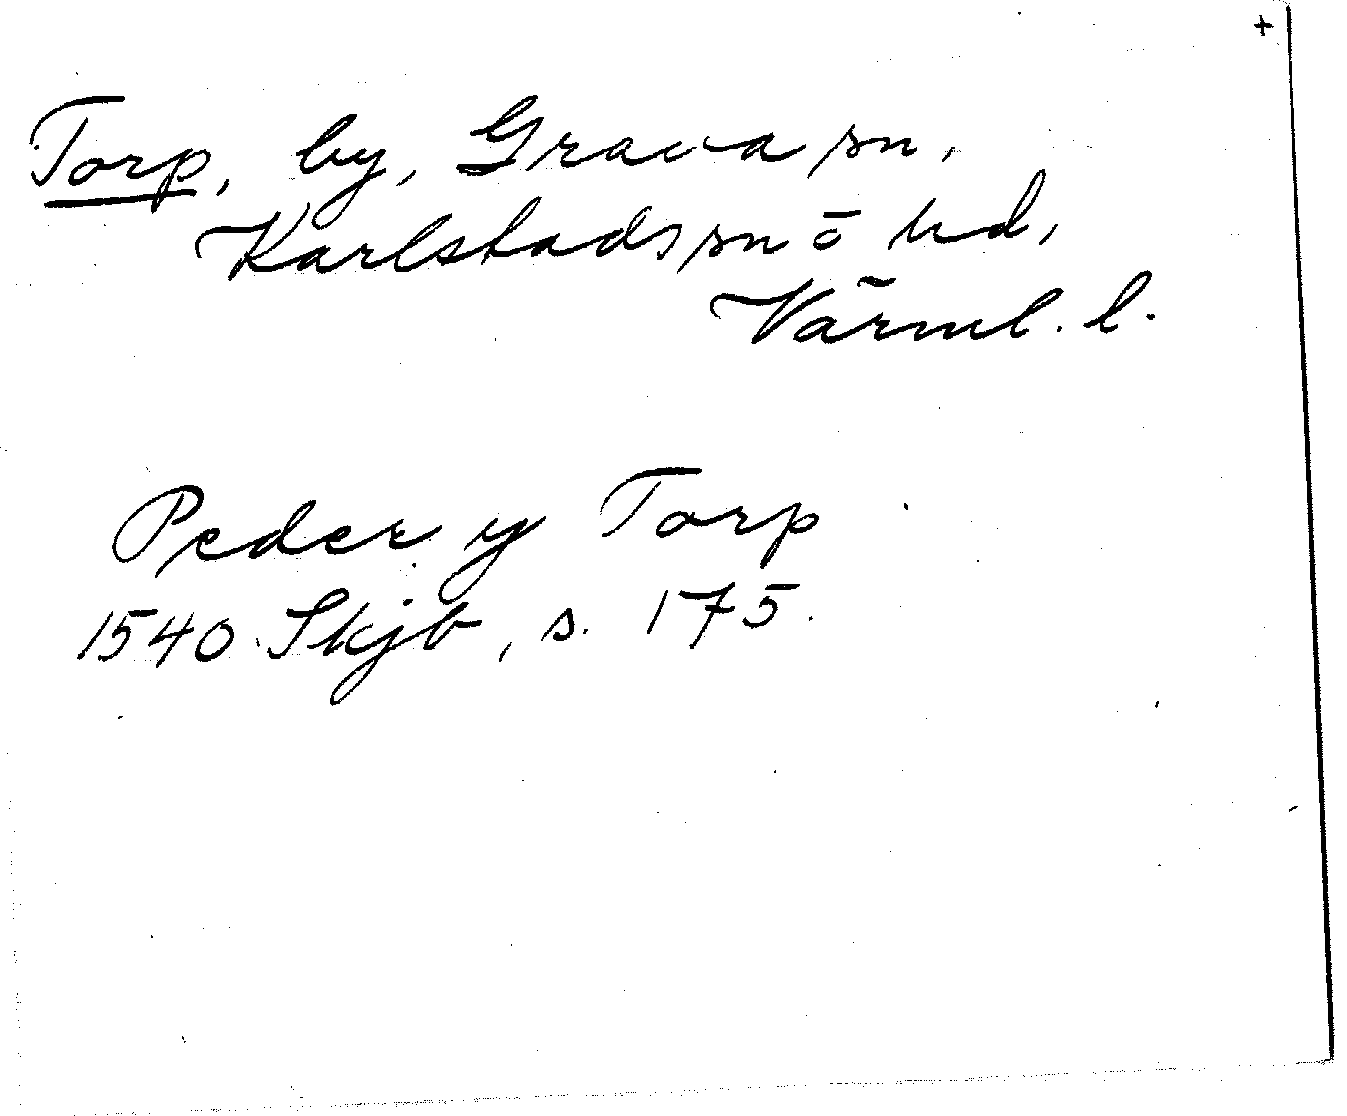 +
Torp, by, Grava sn,
Karlstads sn o hd,
Värml. l.
Peder y Torp
1540 Skjb, s. 175.